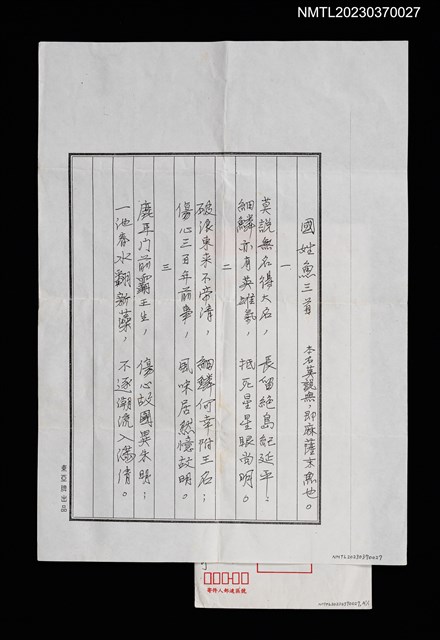 NMTL20230370027
國姓魚三首　本名莫說無，即麻薩末魚也。
一
莫說無名得大名，長留絕島紀延平：
細鱗亦有英雄氣，抵死星星眼尚明。
二
破浪東來不帶清，細鱗何幸附王名；
傷心三百年前事，風味居然憶故明。
三
鹿耳门前霸王生，傷心故國異朱明；
一池春水翻新藻，不逐潮流入滿清。
東亞牌出品
NMTL20230370027
寄件人郵遞區號